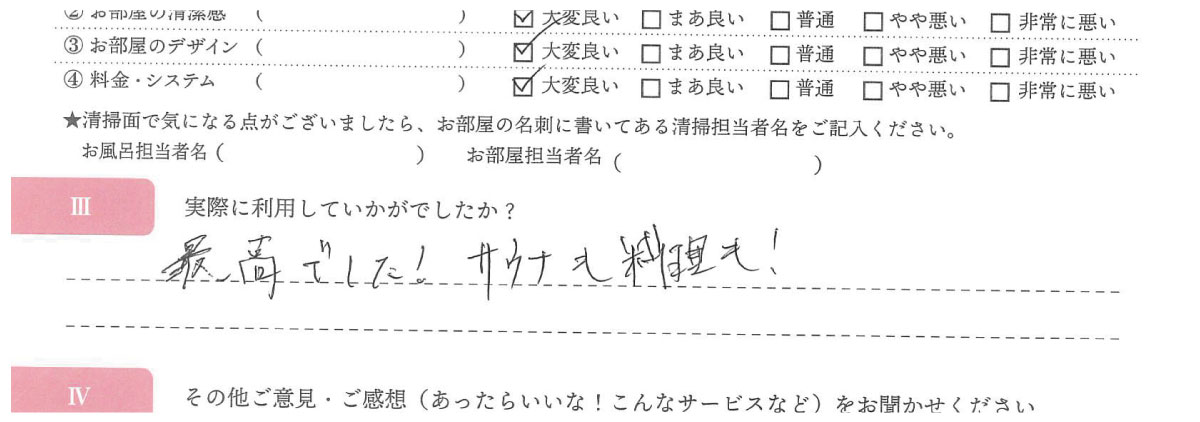 ② お部屋の清潔感 ( ) ☑ 大変良い □ まあ良い □ 普通 □ やや悪い □ 非常に悪い
③ お部屋のデザイン ( ) ☑ 大変良い □ まあ良い □ 普通 □ やや悪い □ 非常に悪い
④ 料金・システム ( ) ☑ 大変良い □ まあ良い □ 普通 □ やや悪い □ 非常に悪い
★清掃面で気になる点がございましたら、お部屋の名刺に書いてある清掃担当者名をご記入ください。
お風呂担当者名 ( ) お部屋担当者名 ( )
Ⅲ 実際に利用していかがでしたか？
最高でした! サウナも料理も!
Ⅳ その他ご意見・ご感想（あったらいいな！こんなサービスなど）をお聞かせください